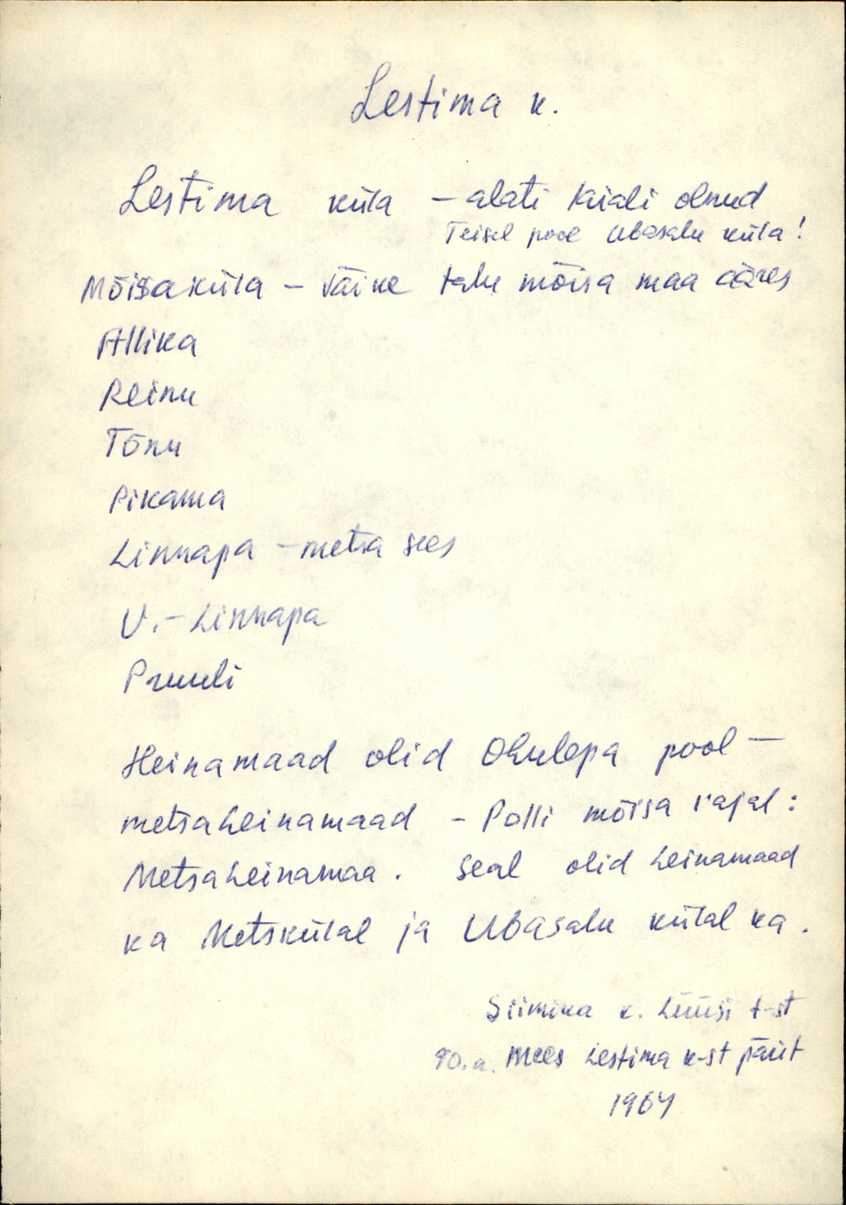 Lestima k.
Lestima küla – alati talali olnud
Teisel pool Ubasalu küla!
Mõisaküla – väike talu mõisa maa ääres
Allika
Reinu
Tõnu
Pikama
Linnapa – metsa sees
U.– Linnapa
Pruuli
Heinamaad olid Ohulepa pool –
metsaheinamaad – Polli mõisa rajal:
Metsaheinamaa. Seal olid heinamaad
ka Metskülal ja Ubasalu külal ka.
Siimika k. Lüüsi t-st
90.a. mees Lestima k-st pärit
1964